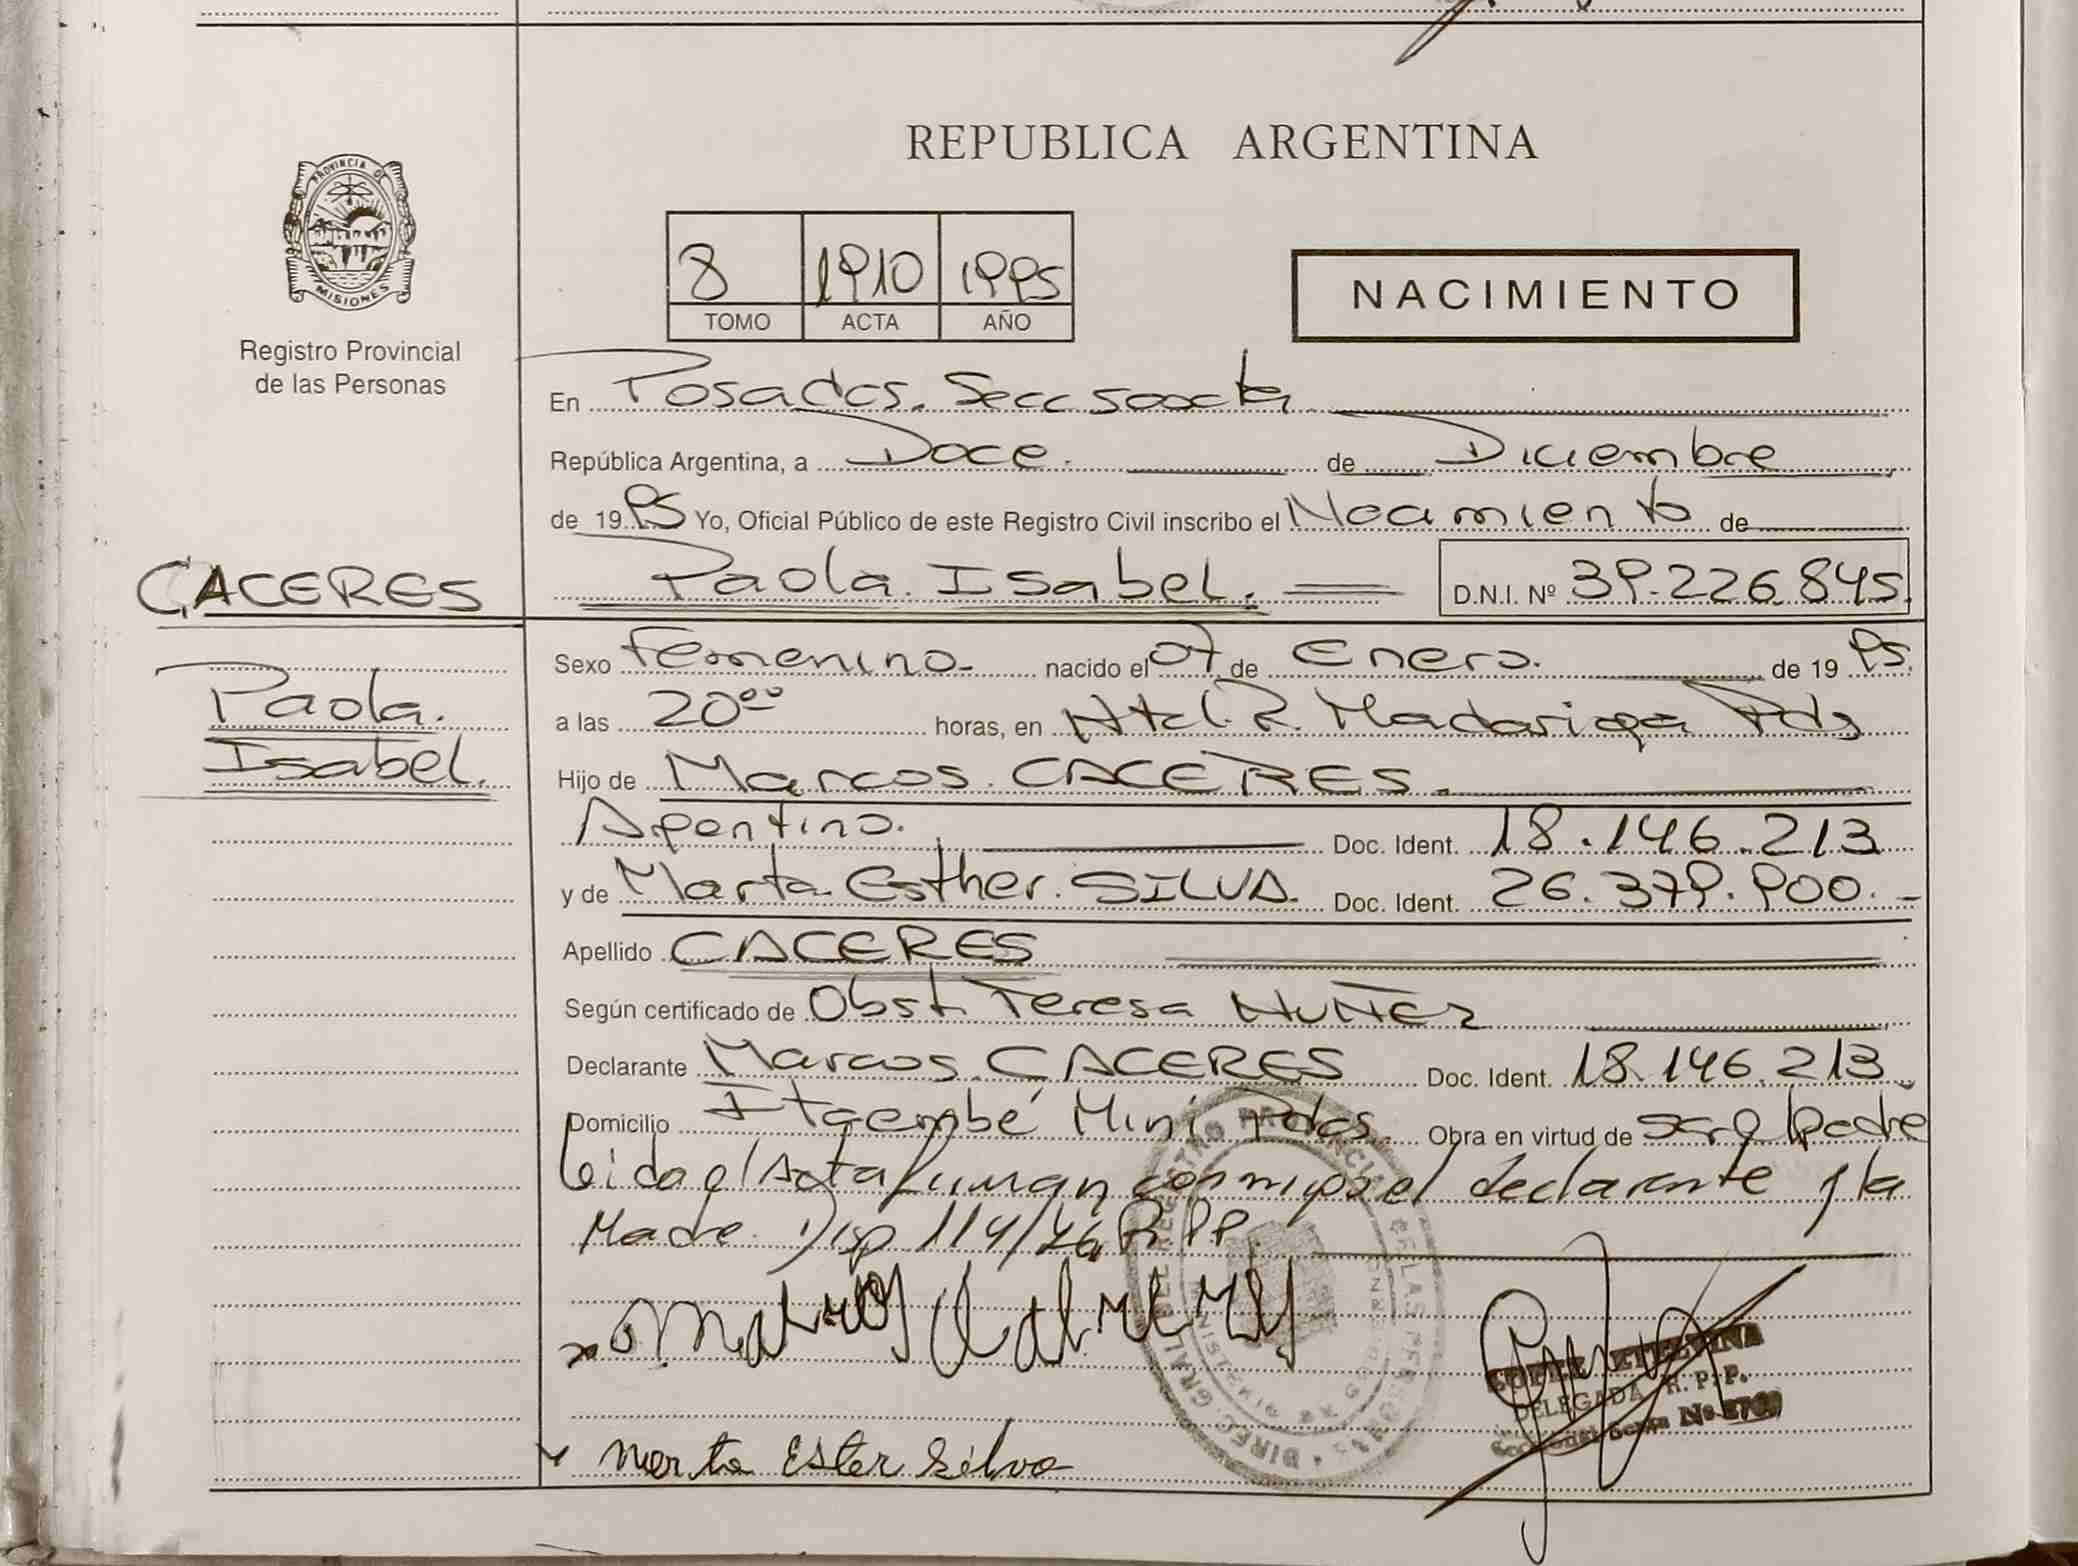 REPUBLICA ARGENTINA
PROVINCIA DE
MISIONES
Registro Provincial
de las Personas
8 1910 1995
TOMO ACTA AÑO
NACIMIENTO
En Posadas. Secc sexta
República Argentina, a Doce. de Diciembre
de 1995 Yo, Oficial Público de este Registro Civil inscribo el Nacimiento de
CACERES
Paola Isabel. D.N.I. Nº 39.226.845.
Paola.
Isabel.
Sexo Femenino. nacido el 07 de Enero. de 1995.
a las 20⁰⁰ horas, en Htal. R. Madariaga Pdas
Hijo de Marcos CACERES.
Argentino. Doc. Ident. 18.146.213
y de Marta Esther SILVA. Doc. Ident. 26.379.900.-
Apellido CACERES
Según certificado de Obst. Teresa NUÑEZ
Declarante Marcos CACERES Doc. Ident. 18.146.213
Domicilio Itaembé Mini Pdas. Obra en virtud de padre
leida el Acta firman conmigo el declarante y la
Madre. Disp 114/76 R.P.P.
Marta Ester Silva
DELEGADA R.P.P.